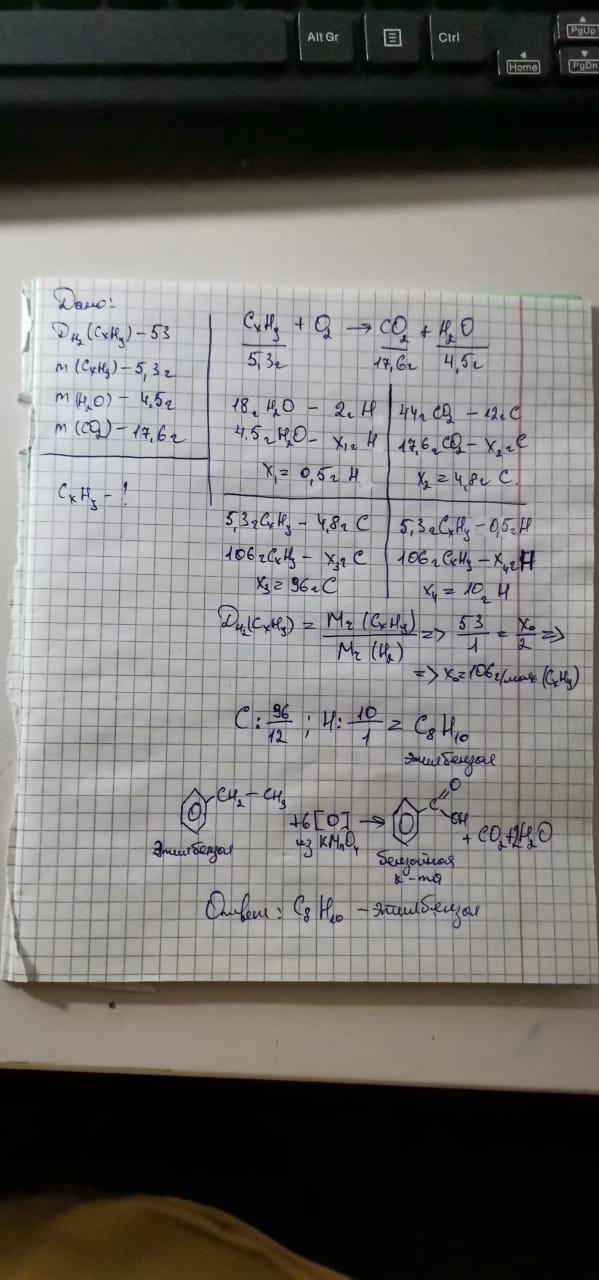 Alt Gr
Ctrl
PgUp
Home
PgDn
Дано:
D_H₂(CxHy) – 53
m(CxHy) – 5,3г
m(H₂O) – 4,5г
m(CO₂) – 17,6г
CxHy – ?
CxHy + O₂ → CO₂ + H₂O
5,3г 17,6г 4,5г
18г H₂O – 2г H
4,5г H₂O – x₁г H
x₁ = 0,5г H
44г CO₂ – 12г C
17,6г CO₂ – x₂г C
x₂ = 4,8г C.
5,3г CxHy – 4,8г C
106г CxHy – x₃г C
x₃ = 96г C
5,3г CxHy – 0,5г H
106г CxHy – x₄г H
x₄ = 10г H
D_H₂(CxHy) = Mr(CxHy)/Mr(H₂) => 53/1 = x₀/2 =>
=> x₀ = 106г/моль (CxHy)
C: 96/12 ; H: 10/1 = C₈H₁₀
этилбензол
CH₂ – CH₃
+6[O] →
из KMnO₄
C O OH
+ CO₂ + 2H₂O
Этилбензол
бензойная
к-та
Ответ: C₈H₁₀ – этилбензол